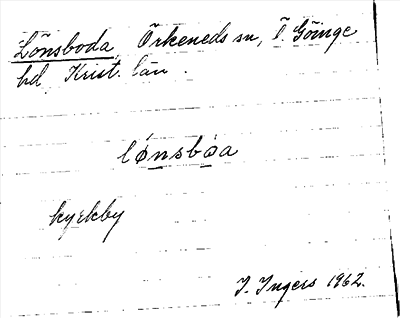 Lönsboda, Örkeneds sn, Ö. Göinge
hd, Krist. län.
lǿnsbøa
kyrkby
I. Ingers 1962.